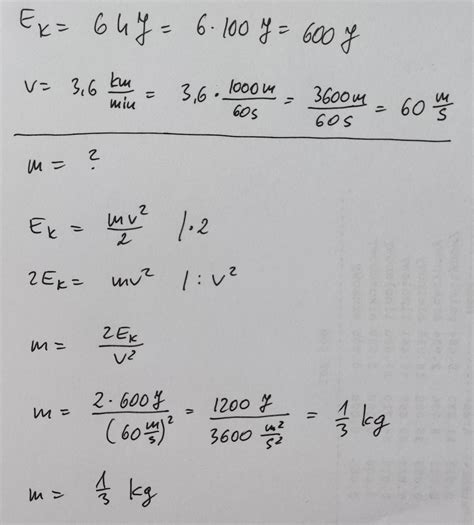 E_k = 6 hJ = 6·100 J = 600 J
v = 3,6 km/min = 3,6 · 1000m/60s = 3600m/60s = 60 m/s
m = ?
E_k = mv²/2 /·2
2E_k = mv² /:v²
m = 2E_k/v²
m = 2·600J/(60 m/s)² = 1200 J/3600 m²/s² = 1/3 kg
m = 1/3 kg